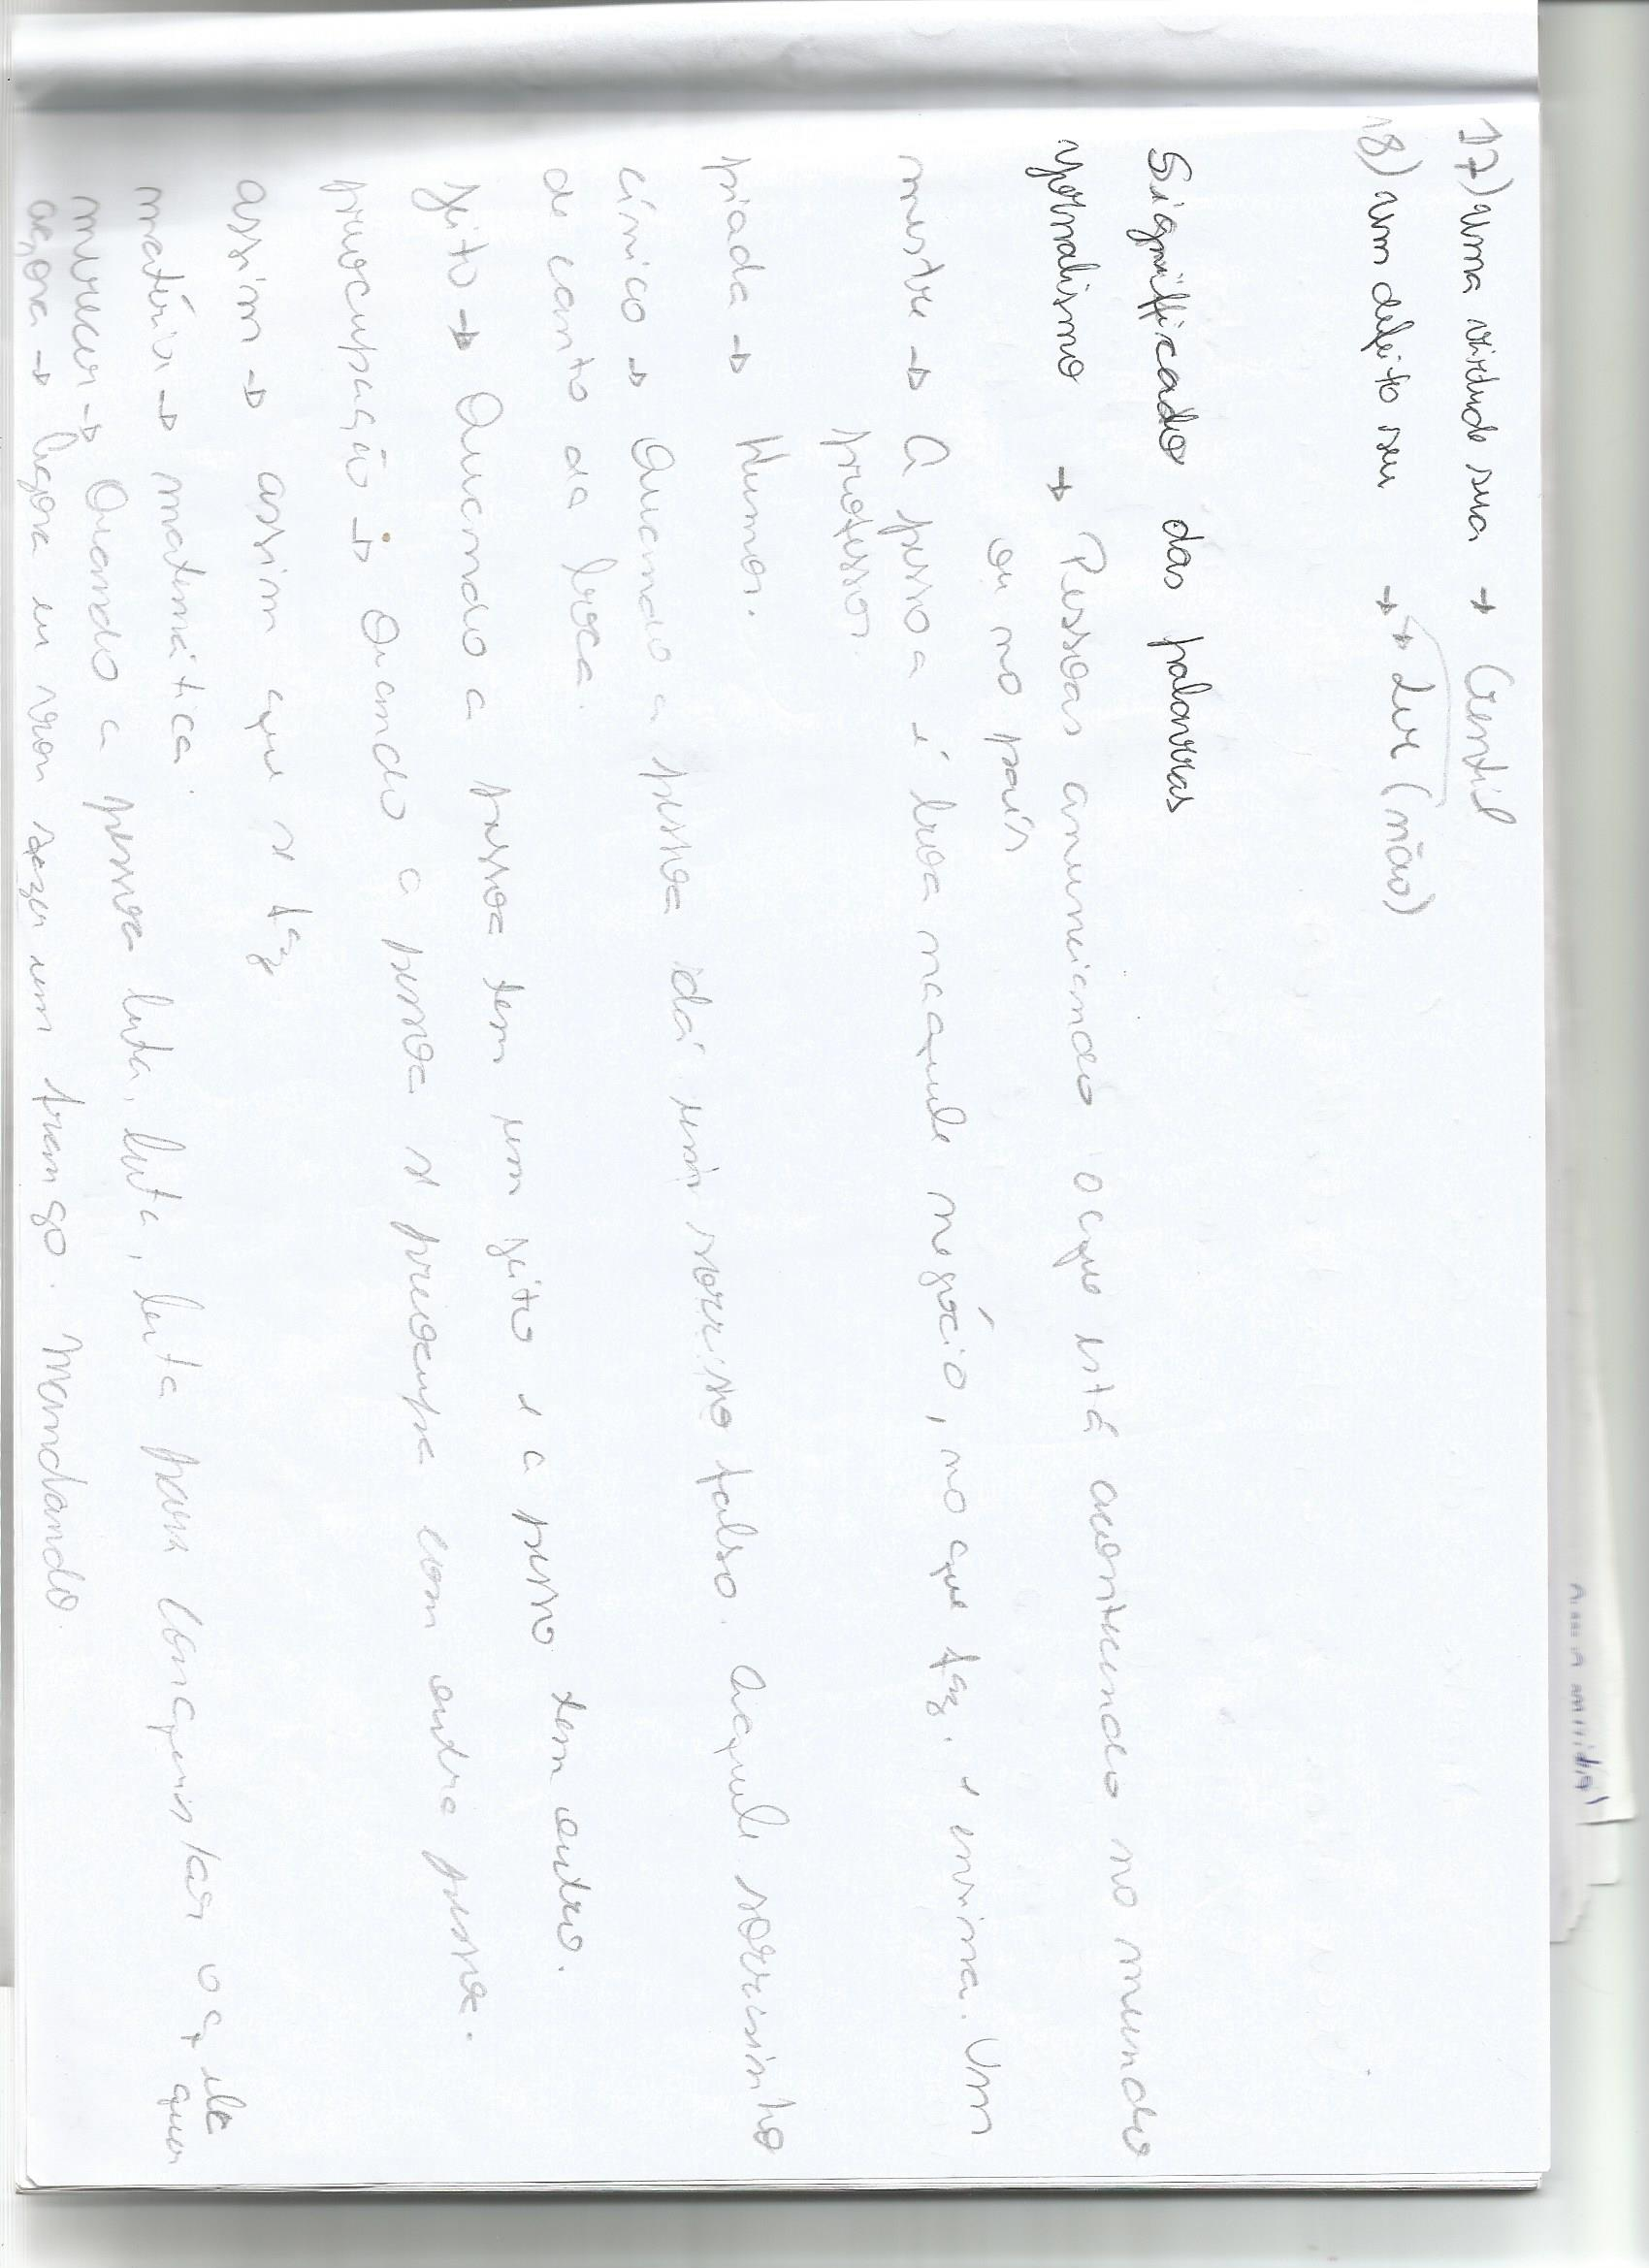 17) uma virtude sua → Gentil
18) um defeito seu → → Ler (não)
Significado das palavras
jornalismo → Pessoas anunciando oque está acontecendo no mundo
ou no país
mestre → A pesso a é boa naquele negócio, no que faz. e ensina. Um
professor.
piada → Humor.
cínico → Quando a pessoa dá um sorriso falso. Aquele sorrisinho
de canto da boca.
jeito → Quando a pessoa tem um jeito e a pesso tem outro.
preocupação → Quando a pessoa se preocupa com outra pessoa.
assim → assim que se faz
matéria → matemática
merecer → Quando a pessoa luta, luta, luta para conquistar oq ele
quer
agora → Agora eu vou fazer um frango. Mandando.